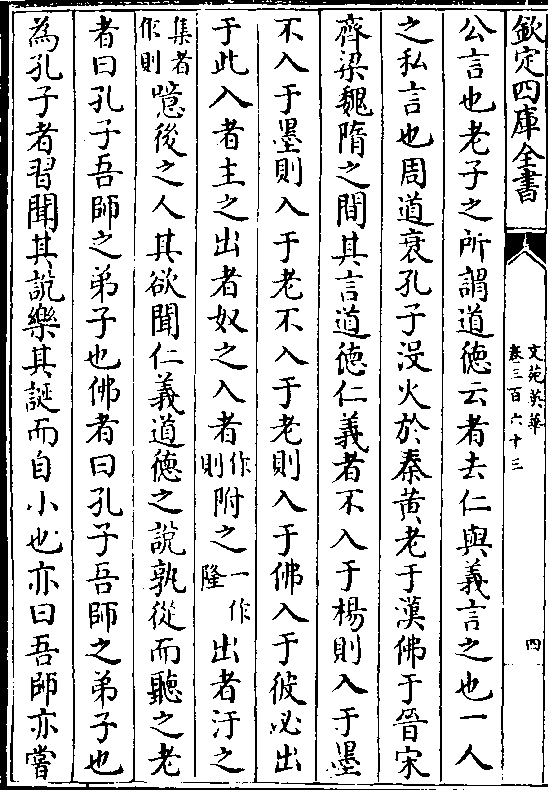 欽定四庫全書
文苑英華
卷三百六十三
四
公言也老子之所謂道德云者去仁與義言之也一人
之私言也周道衰孔子沒火於秦黃老于漢佛于晉宋
齊梁魏隋之間其言道德仁義者不入于楊則入于墨
不入于墨則入于老不入于老則入于佛入于彼必出
于此入者主之出者奴之入者作則附之一作隆出者汙之
集者作則噫後之人其欲聞仁義道德之說孰從而聽之老
者曰孔子吾師之弟子也佛者曰孔子吾師之弟子也
為孔子者習聞其說樂其誕而自小也亦曰吾師亦嘗